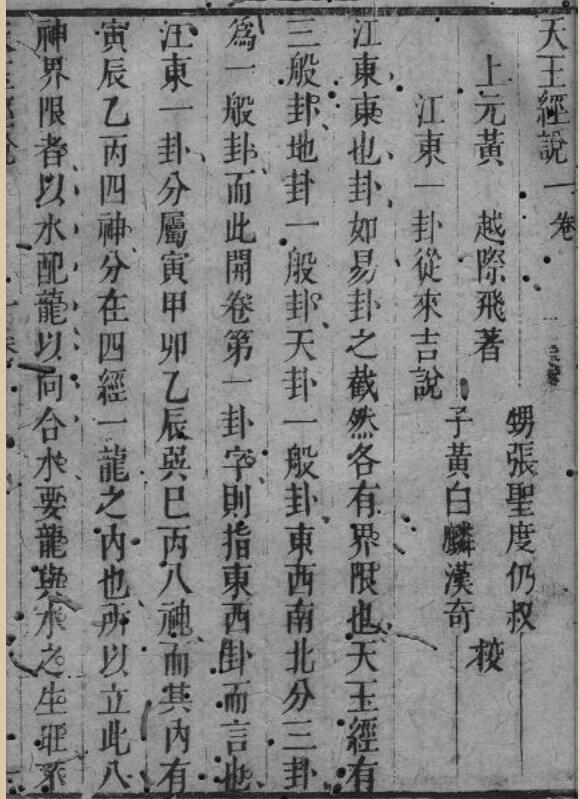 天玉經說一卷
上元黃 越際飛著
甥張聖度仍叔
子黃白麟漢奇
校
江東一卦從來吉說
江東東也卦如易卦之截然各有界限也天玉經有
三般卦地卦一般卦天卦一般卦東西南北分三卦
爲一般卦而此開卷第一卦字則指東西卦而言也
江東一卦分屬寅甲卯乙辰巽巳丙八神而其內有
寅辰乙丙四神分在四經一龍之內也所以立此八
神界限者以水配龍以向合水要龍與水之生旺不